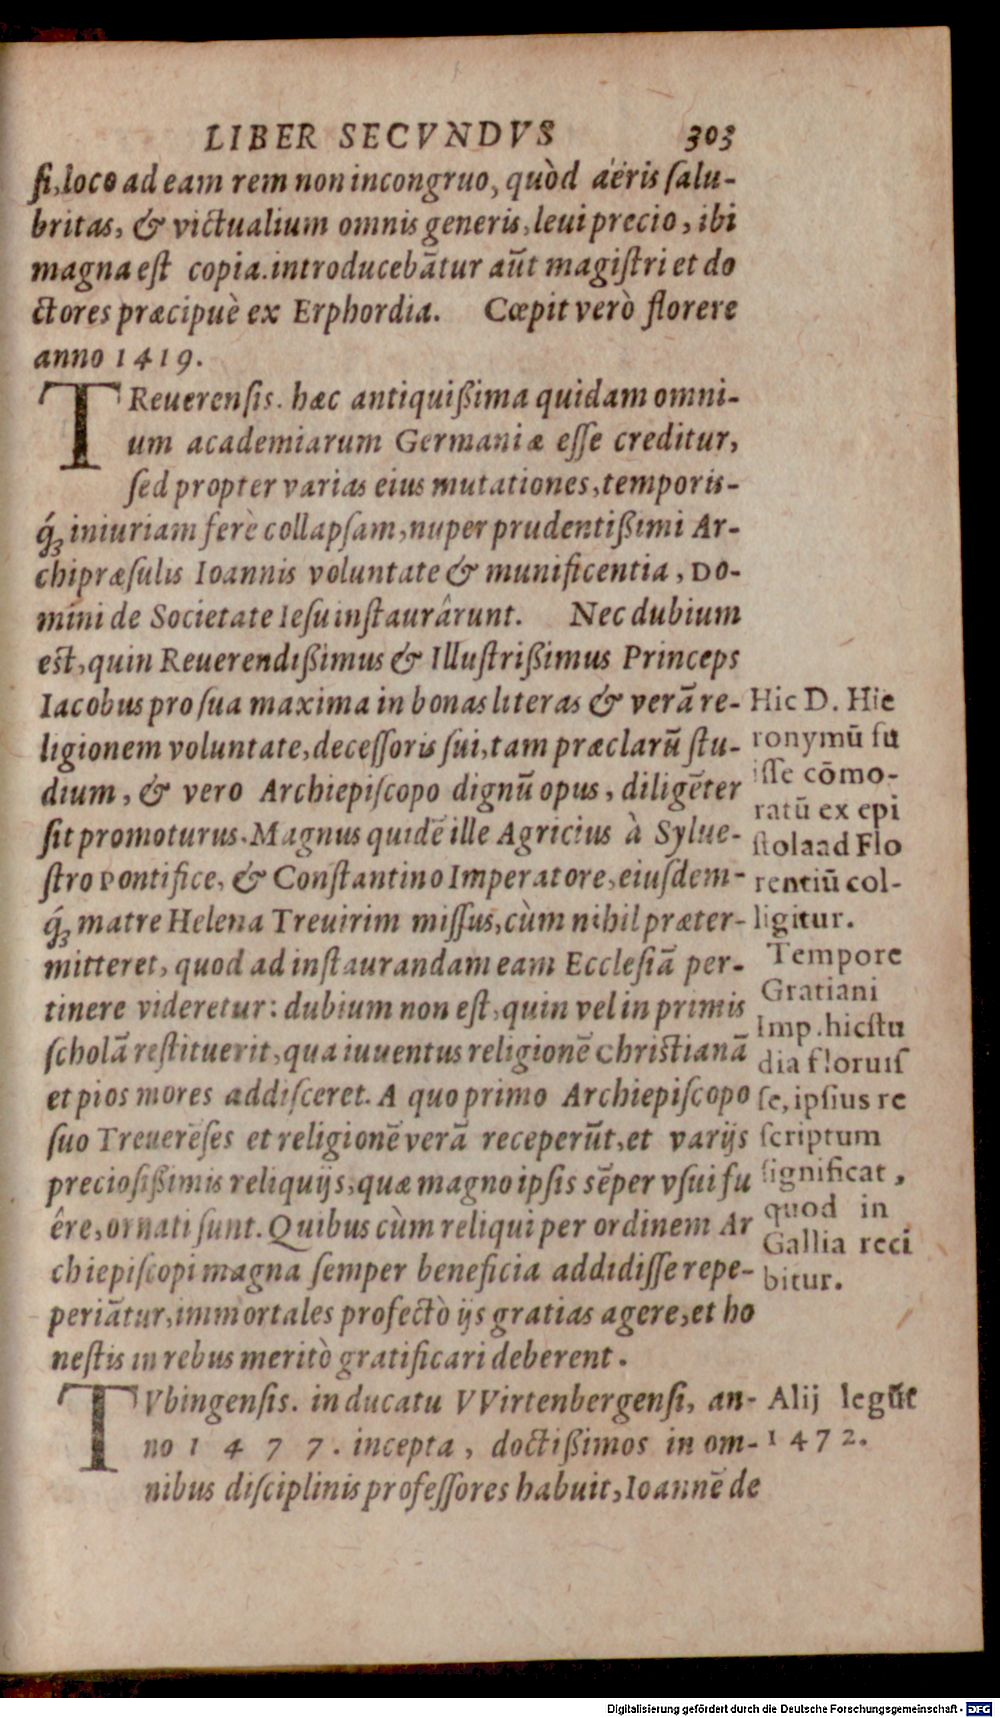 LIBER SECVNDVS 303
ſi, loco ad eam rem non incongruo, quòd aëris ſalu-
britas, & victualium omnis generis, leui precio, ibi
magna eſt copia. introducebātur aūt magiſtri et do
ctores præcipuè ex Erphordia. Cœpit verò florere
anno 1419.
TReuerenſis. hæc antiquißima quidam omni-
um academiarum Germaniæ eſſe creditur,
ſed propter varias eius mutationes, temporis-
q́ꝫ iniuriam ferè collapſam, nuper prudentißimi Ar-
chipræſulis Ioannis voluntate & munificentia, DO-
mini de Societate Ieſu inſtaurârunt. Nec dubium
eſt, quin Reuerendißimus & Illuſtrißimus Princeps
Iacobus pro ſua maxima in bonas literas & verā re-
ligionem voluntate, deceſſoris ſui, tam præclarū ſtu-
dium, & vero Archiepiſcopo dignū opus, diligēter
ſit promoturus. Magnus quidē ille Agricius à Sylue-
ſtro Pontifice, & Conſtantino Imperatore, eiuſdem-
q́ꝫ matre Helena Treuirim miſſus, cùm nihil præter-
mitteret, quod ad inſtaurandam eam Eccleſiā per-
tinere videretur: dubium non eſt, quin vel in primis
ſcholā reſtituerit, qua iuuentus religionē Chriſtianā
et pios mores addiſceret. A quo primo Archiepiſcopo
ſuo Treuerēſes et religionē verā receperūt, et varijs
precioſißimis reliquijs, quæ magno ipſis sēper vſui fu
êre, ornati ſunt. Quibus cùm reliqui per ordinem Ar
chiepiſcopi magna ſemper beneficia addidiſſe repe-
periātur, immortales profectò ijs gratias agere, et ho
neſtis in rebus meritò gratificari deberent.
TVbingenſis. in ducatu VVirtenbergenſi, an-
no 1477. incepta, doctißimos in om-
nibus diſciplinis profeſſores habuit, Ioannē de
Hic D. Hie
ronymū fu
iſſe cōmo-
ratū ex epi
ſtola ad Flo
rentiū col-
ligitur.
Tempore
Gratiani
Imp. hic ſtu
dia floruiſ
ſe, ipſius re
ſcriptum
ſignificat,
quod in
Gallia reci
bitur.
Alij legūt
1472.
Digitalisierung gefördert durch die Deutsche Forschungsgemeinschaft - DFG